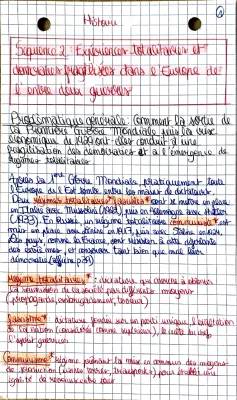 Histoire
Séquence 2 : Expériences totalitaires et
démocraties fragilisées dans l'Europe de
l'entre deux guerres
Problématique générale : Comment la sortie de
la Première Guerre Mondiale puis la crise
économique de 1929 ont elles conduit à une
fragilisation des démocraties et à l'émergence de
régimes totalitaires
Après la 1ère Guerre Mondiale, pratiquement toute
l'Europe de l'Est tombe entre les mains de dictateurs.
Deux régimes totalitaires* fascistes* sont se mettre en place
en Italie avec Mussolini (1922), puis en Allemagne avec Hitler
(1933). En Russie, un régime totalitaire communiste* est
mis en place avec Lénine en 1917, puis avec Staline en 1924.
pays, comme la France, ont résister à cette
des
démocratie
Régime totalitaire* : dictature qui cherche à obtenir
la de la société par différents moyens
(propagande, embrigadement, terreur)
Fascisme* : dictature fondée sur un parti unique, l'exaltation
de la nation (considérée comme supérieure), le culte du chef,
l'esprit guerrier
Communisme* : Régime prônant la mise en commun des moyens
de production (usines, terres, transports) pour établir une
égalité de